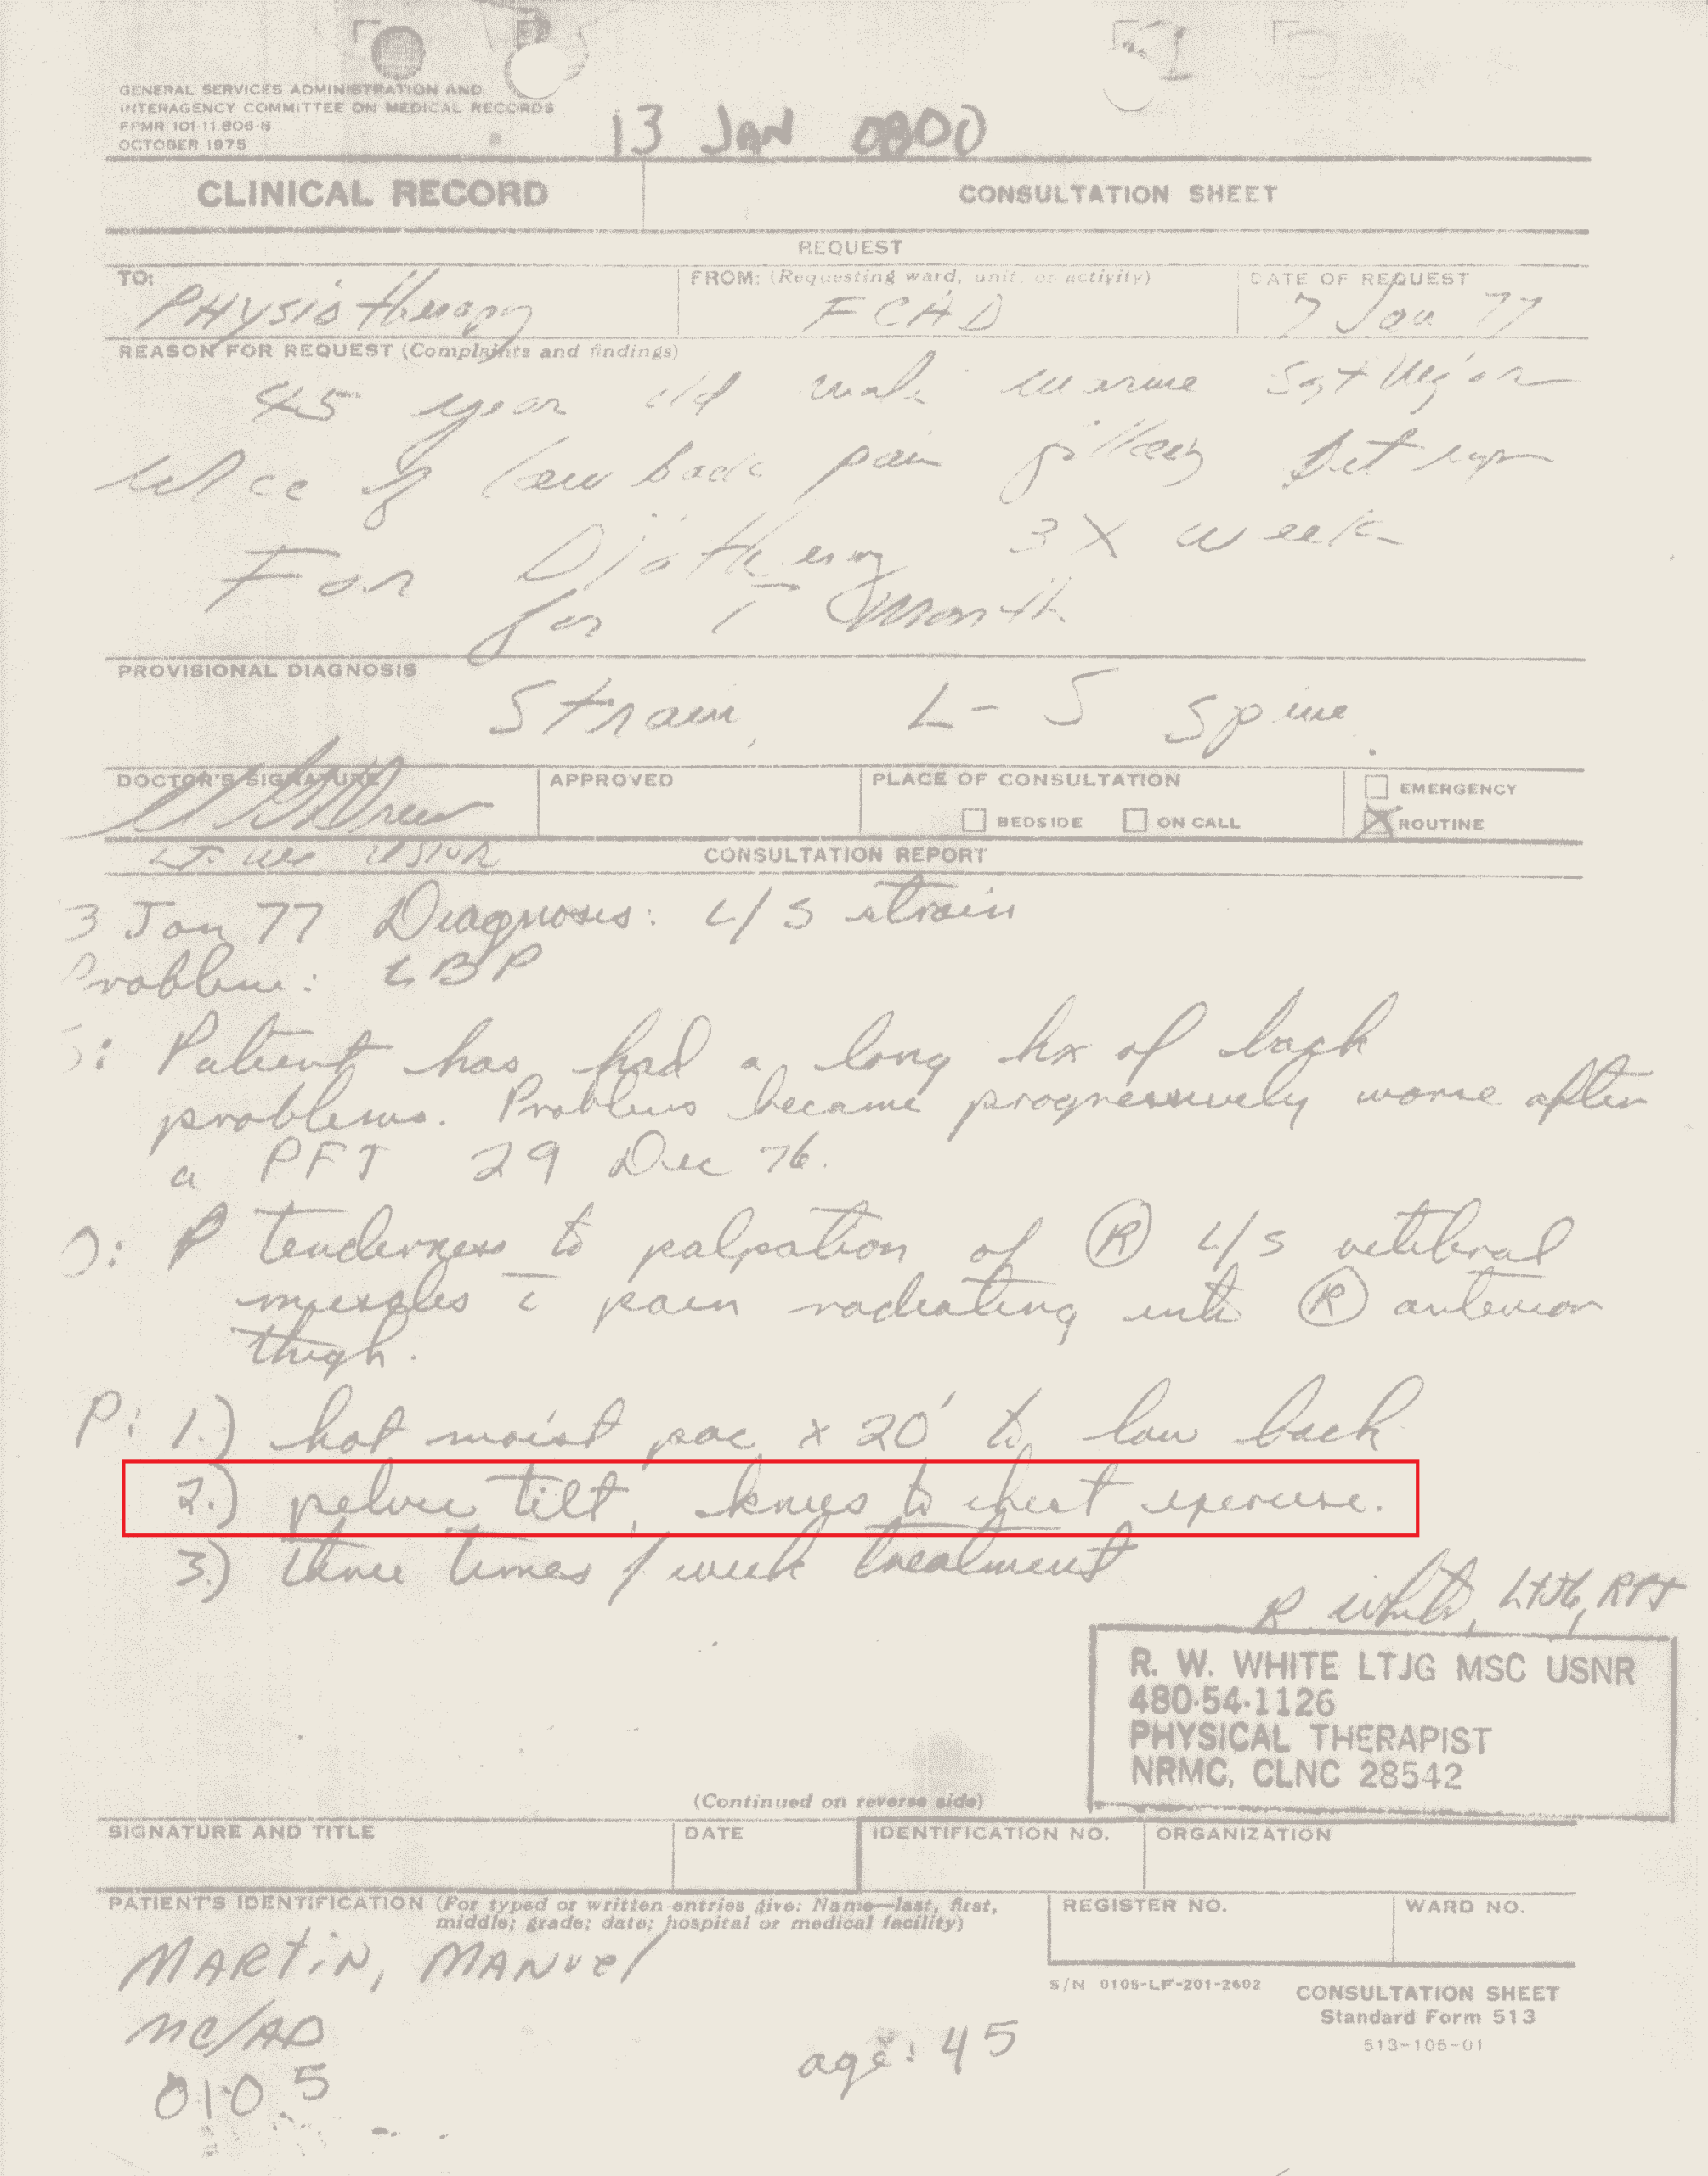 GENERAL SERVICES ADMINISTRATION AND
INTERAGENCY COMMITTEE ON MEDICAL RECORDS
FPMR 101-11.806-8
OCTOBER 1975
13 JAN 0800
CLINICAL RECORD CONSULTATION SHEET
REQUEST
TO: FROM: (Requesting ward, unit, or activity) DATE OF REQUEST
PHysiotherapy FCAD 7 Jan 77
REASON FOR REQUEST (Complaints and findings)
45 year old male marine Sgt Major
of low back pain
For 3 X week
for 1 month
PROVISIONAL DIAGNOSIS
Strain, L-S Spine.
DOCTOR'S SIGNATURE APPROVED PLACE OF CONSULTATION
EMERGENCY
BEDSIDE ON CALL ROUTINE
CONSULTATION REPORT
3 Jan 77 Diagnosis: L/S strain
Problem: LBP
S: Patient has had a long hx of back
problems. Problems became progressively worse after
a PFT 29 Dec 76.
O: P tenderness to palpation of R L/S vertebral
muscles c̄ pain radiating into R anterior
thigh.
P: 1.) hot moist pac x 20' to low back
2.) pelvic tilt, knees to chest exercise.
3.) three times / week treatment
R White, LTJG, RPT
R. W. WHITE LTJG MSC USNR
480-54-1126
PHYSICAL THERAPIST
NRMC, CLNC 28542
(Continued on reverse side)
SIGNATURE AND TITLE DATE IDENTIFICATION NO. ORGANIZATION
PATIENT'S IDENTIFICATION (For typed or written entries give: Name—last, first,
middle; grade; date; hospital or medical facility)
REGISTER NO. WARD NO.
MARTiN, MANUel
MC/AD
0105
age: 45
S/N 0105-LF-201-2602
CONSULTATION SHEET
Standard Form 513
513-105-01